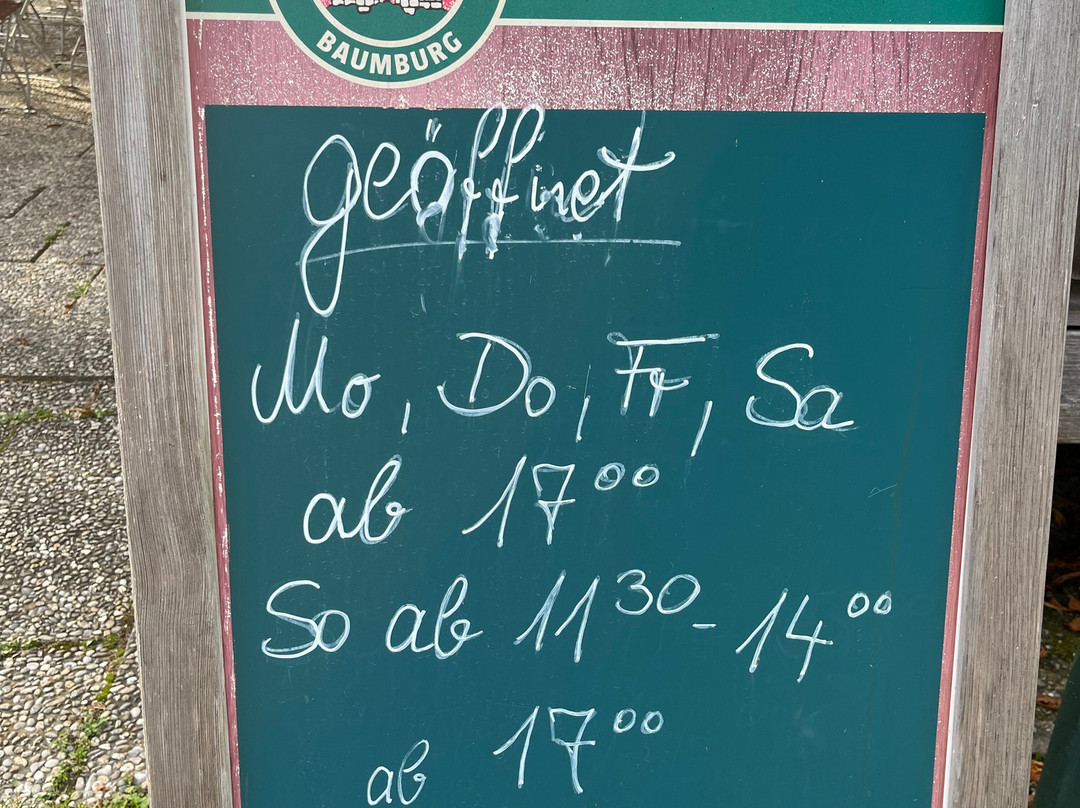 BAUMBURG
geöffnet
Mo, Do, Fr, Sa
ab 17⁰⁰
So ab 11³⁰ - 14⁰⁰
ab 17⁰⁰